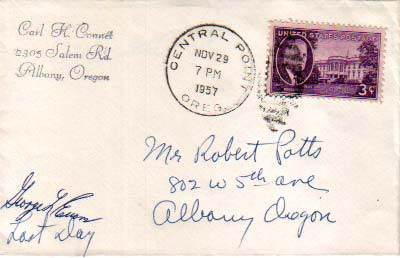 Carl H. Connet
2305 Salem Rd.
Albany, Oregon
CENTRAL POINT
NOV 29
7 PM
1957
OREG.
UNITED STATES POSTAGE
3¢
Mr Robert Potts
802 W 5th ave
Albany Oregon
George
Last Day